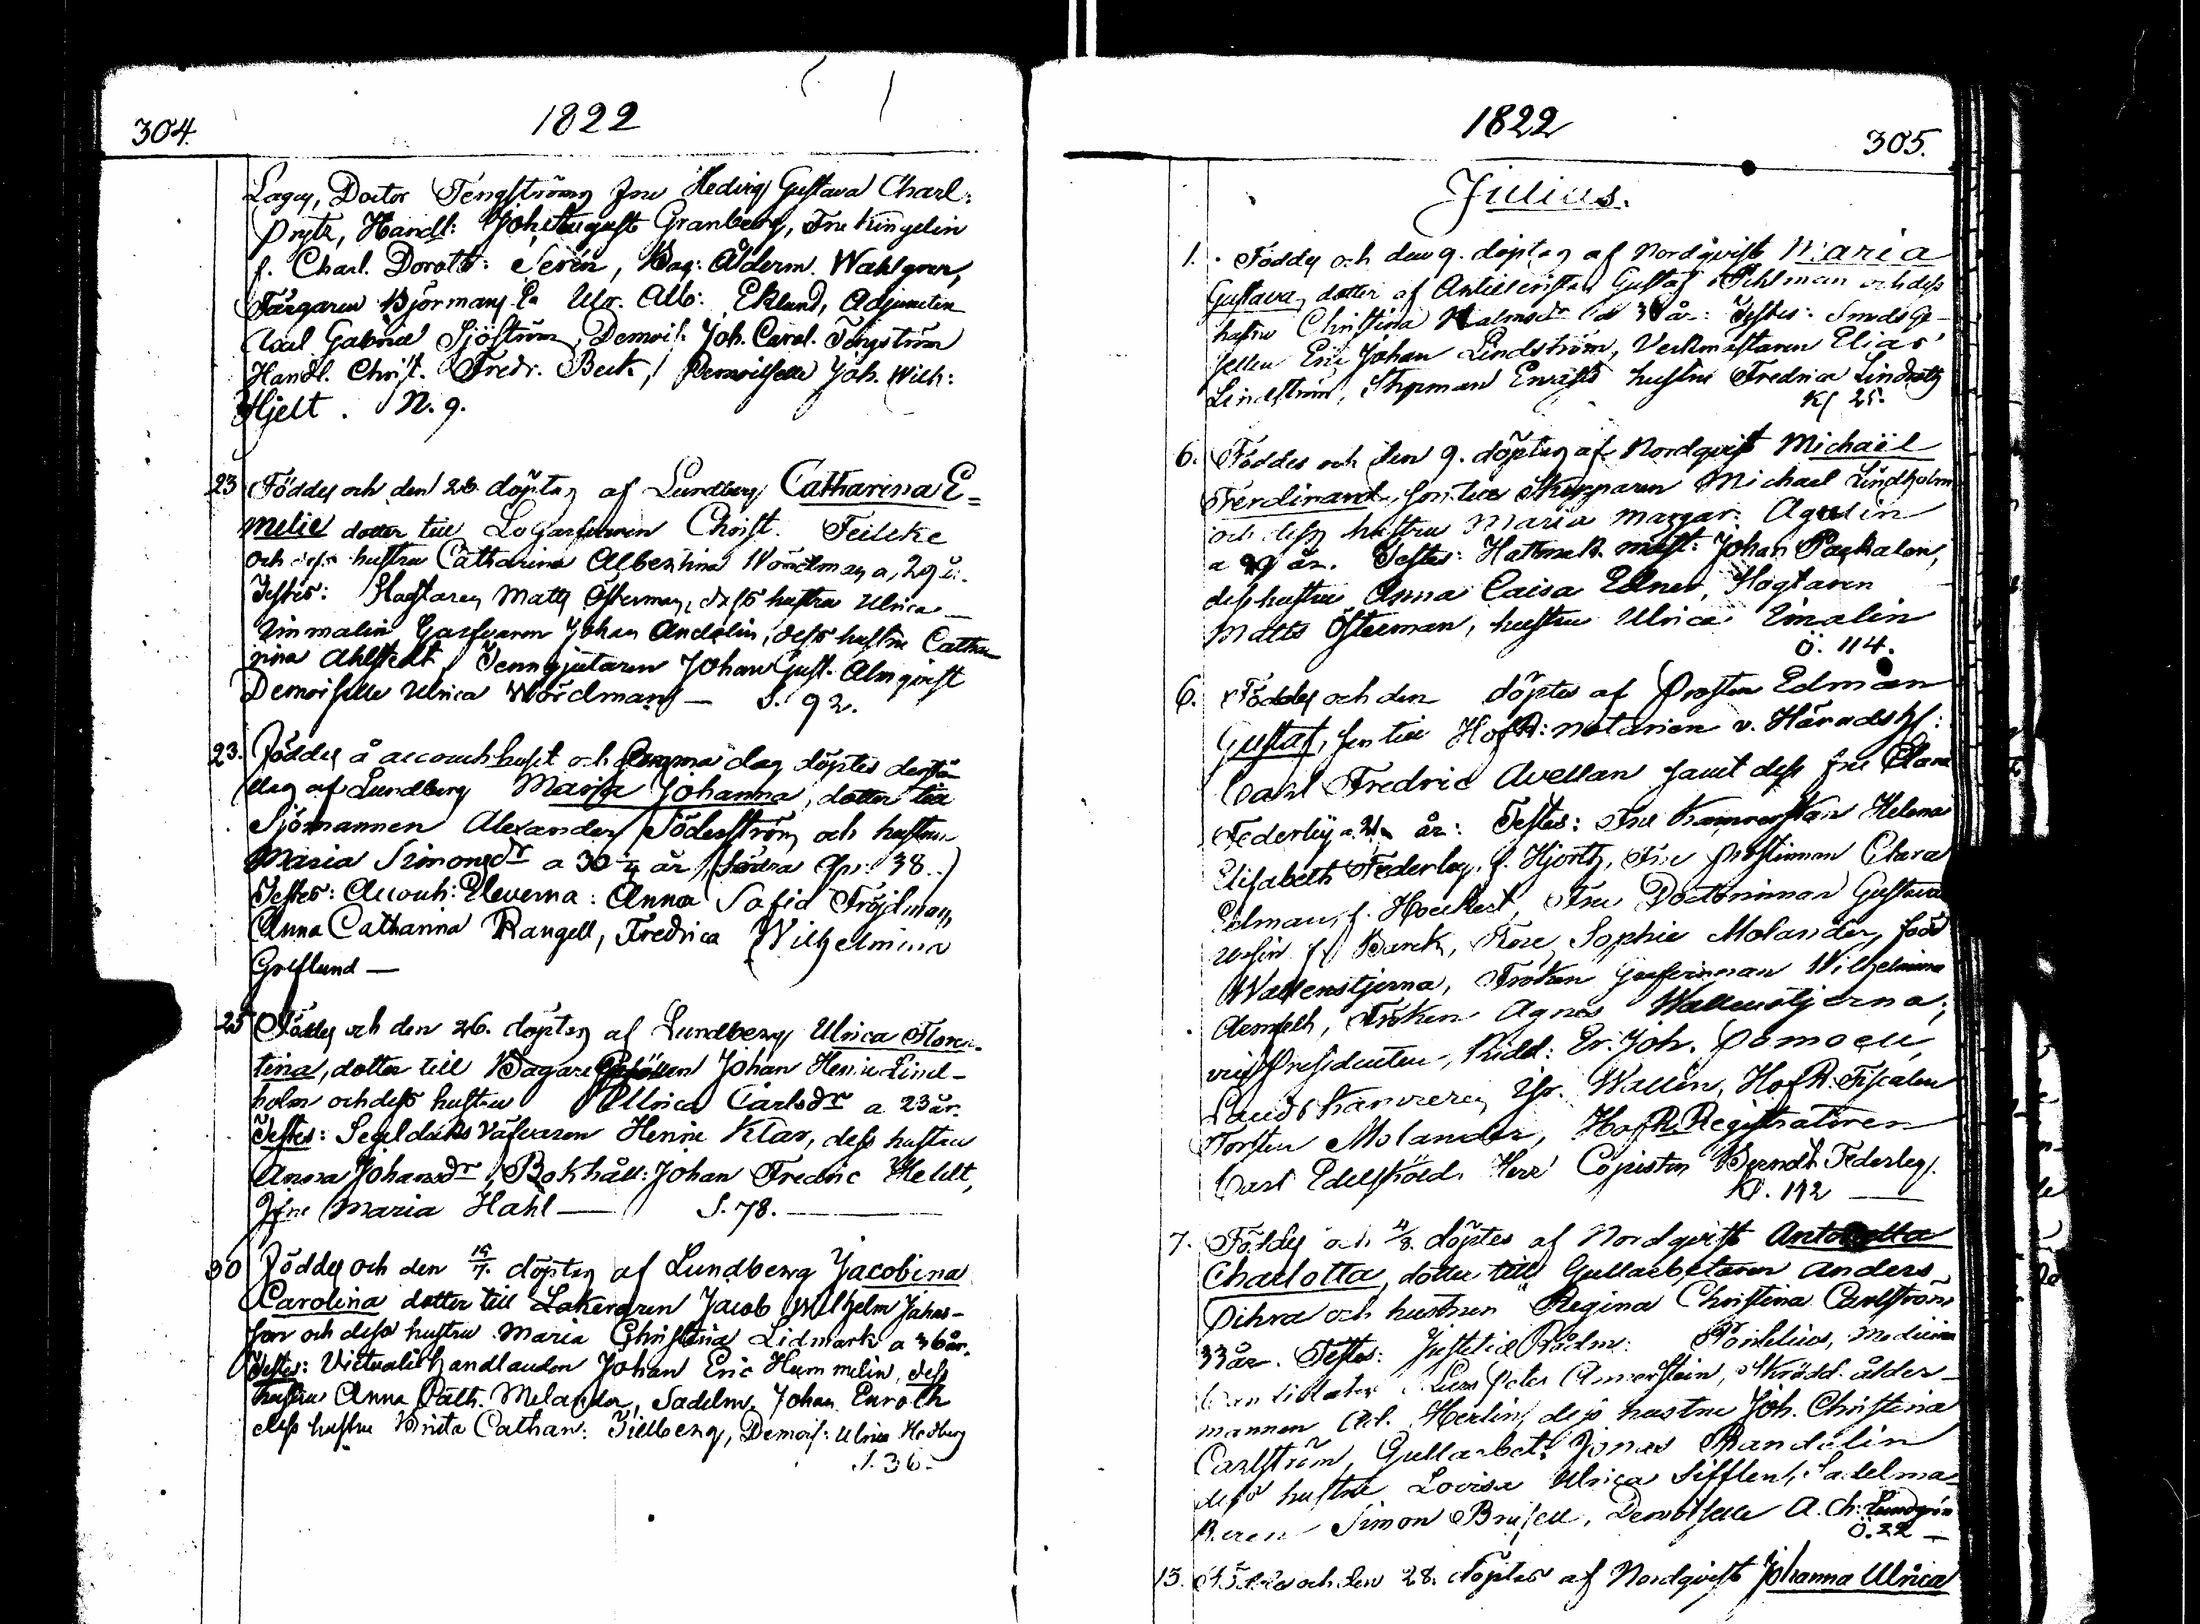 304.
1822
Doctor Tengström Fru Hedvig Gustava Charl:
Prytz, Handl: Joh. August Granberg, Fru Kingelin
f. Charl. Doroth: Serén, Bag: Ålderm. Wahlgren,
Färgaren Björman Ulr. Alb: Eklund, Adjuncten
Carl Gabriel Sjöström, Demois: Joh. Carol. Tengström
Handl. Christ. Fredr. Beck, Demoiselle Joh. Wilh:
Hjelt. N. 9.
23 Föddes och den 26. döptes af Lundberg Catharina E=
melie dotter till Logarfvaren Christ. Feilcke
och dess hustru Catharina Albertina Wördman a, 29 år.
Testes: Hagtaren Matts Österman, dess hustru Ulrica
Zinmalin Garfvaren Johan Andelin, dess hustru Catha
rina Ahlstedt, Tenngjutaren Johan Gust. Almqvist
Demoiselle Ulrica Wördman — S. 92.
23. Föddes å accouch huset och samma dag döptes
af Lundberg Maria Johanna, dotter till
Sjömannen Alexander Söderström och hustru
Maria Simonsdr a 30 år (Södra Qv: 38.)
Testes: Accouch: Eleverna: Anna Sofia Fröjdman,
Anna Catharina Rangell, Fredrica Wilhelmina
Greflund —
25 Föddes och den 26. döptes af Lundberg Ulrica Floren-
tina, dotter till Bagare Gesällen Johan Henric Lind-
holm och dess hustru Ulrica Carlsdr a 23 år.
Testes: Segelduks Väfvaren Henric Klar, dess hustru
Anna Johansdr, Bokhåll: Johan Fredric Heldt,
Jfru Maria Hahl — S. 78. —
30 Föddes och den 19/7. döptes af Lundberg Jacobina
Carolina dotter till Jacob Wilhelm Johans-
son och dess hustru Maria Christina Lidmark a 36 år.
Testes: Victualiehandlanden Johan Eric Hummelin, dess
hustru Anna Cath. Melander, Sadelm. Johan Enroth
dess hustru Brita Cathar: Tillberg, Demois: Ulrica Hedberg
S. 36.
1822
305.
Julius.
1. Föddes och den 9. döptes af Nordqvist Maria
Gustava, dotter af Gustaf Pihlman och dess
hustru Christina Malmsdr år: Testes: Smeds Ge-
sellen Eric Johan Lindström, Verkmästaren Elias
Lindström, Styrman Enqvists hustru Fredrica
Kl 25.
6. Föddes och den 9. döptes af Nordqvist Michaël
Ferdinand, son till Skepparen Michael Lindholm
och dess hustru Maria Margar: Agrelin
a 29 år. Testes: Hattmak. mäst: Johan
dess hustru Anna Caisa Edner, Hagtaren
Matts Österman, hustru Ulrica Zinalin
Ö. 114.
6. Föddes och den döptes af Prosten Edman
Gustaf, son till HofR: Notarien v. Häradshf:
Carl Fredric Avellan samt dess fru Clara
Federley a. år: Testes: Fru Helena
Elisabeth Federley, f. Hjorth, Fru Prostinnan Clara
Edman, f. Hoeckert, Fru Doctorinnan Gustava
f. Barck, Sophie Molander, född
Wallenstjerna, Fröken Grefvinnan Wilhelmina
Armfelt, Fröken Agnes Wallenstjerna,
Presidenten, Ridd: Er. Joh. Pomoell,
Landskamrerer Wallén, HofR. Fiscalen
Torsten Molander, HofR. Registratoren
Carl Edelsköld. Herr Copisten Berndt Federley.
Kl. 112 —
7. Föddes och 4/8. döptes af Nordqvist
Charlotta, dotter till Gullarbetaren Anders
Pihra och hustrun Regina Christina Carlström
33 år. Testes: Justitiæ Rådm: Medicine
Candidaten Peter Skrädd. ålder-
mannen Herlin, dess hustru Joh. Christina
Carlström, Gullarbet: Jonas Randelin
dess hustru Lovisa Ulrica Sifflen, Sadelma-
keren Simon Brusell, Demoiselle A. Ch: Lundgrén
Ö. 22 —
13. Föddes och den 28. döptes af Nordqvist Johanna Ulrica